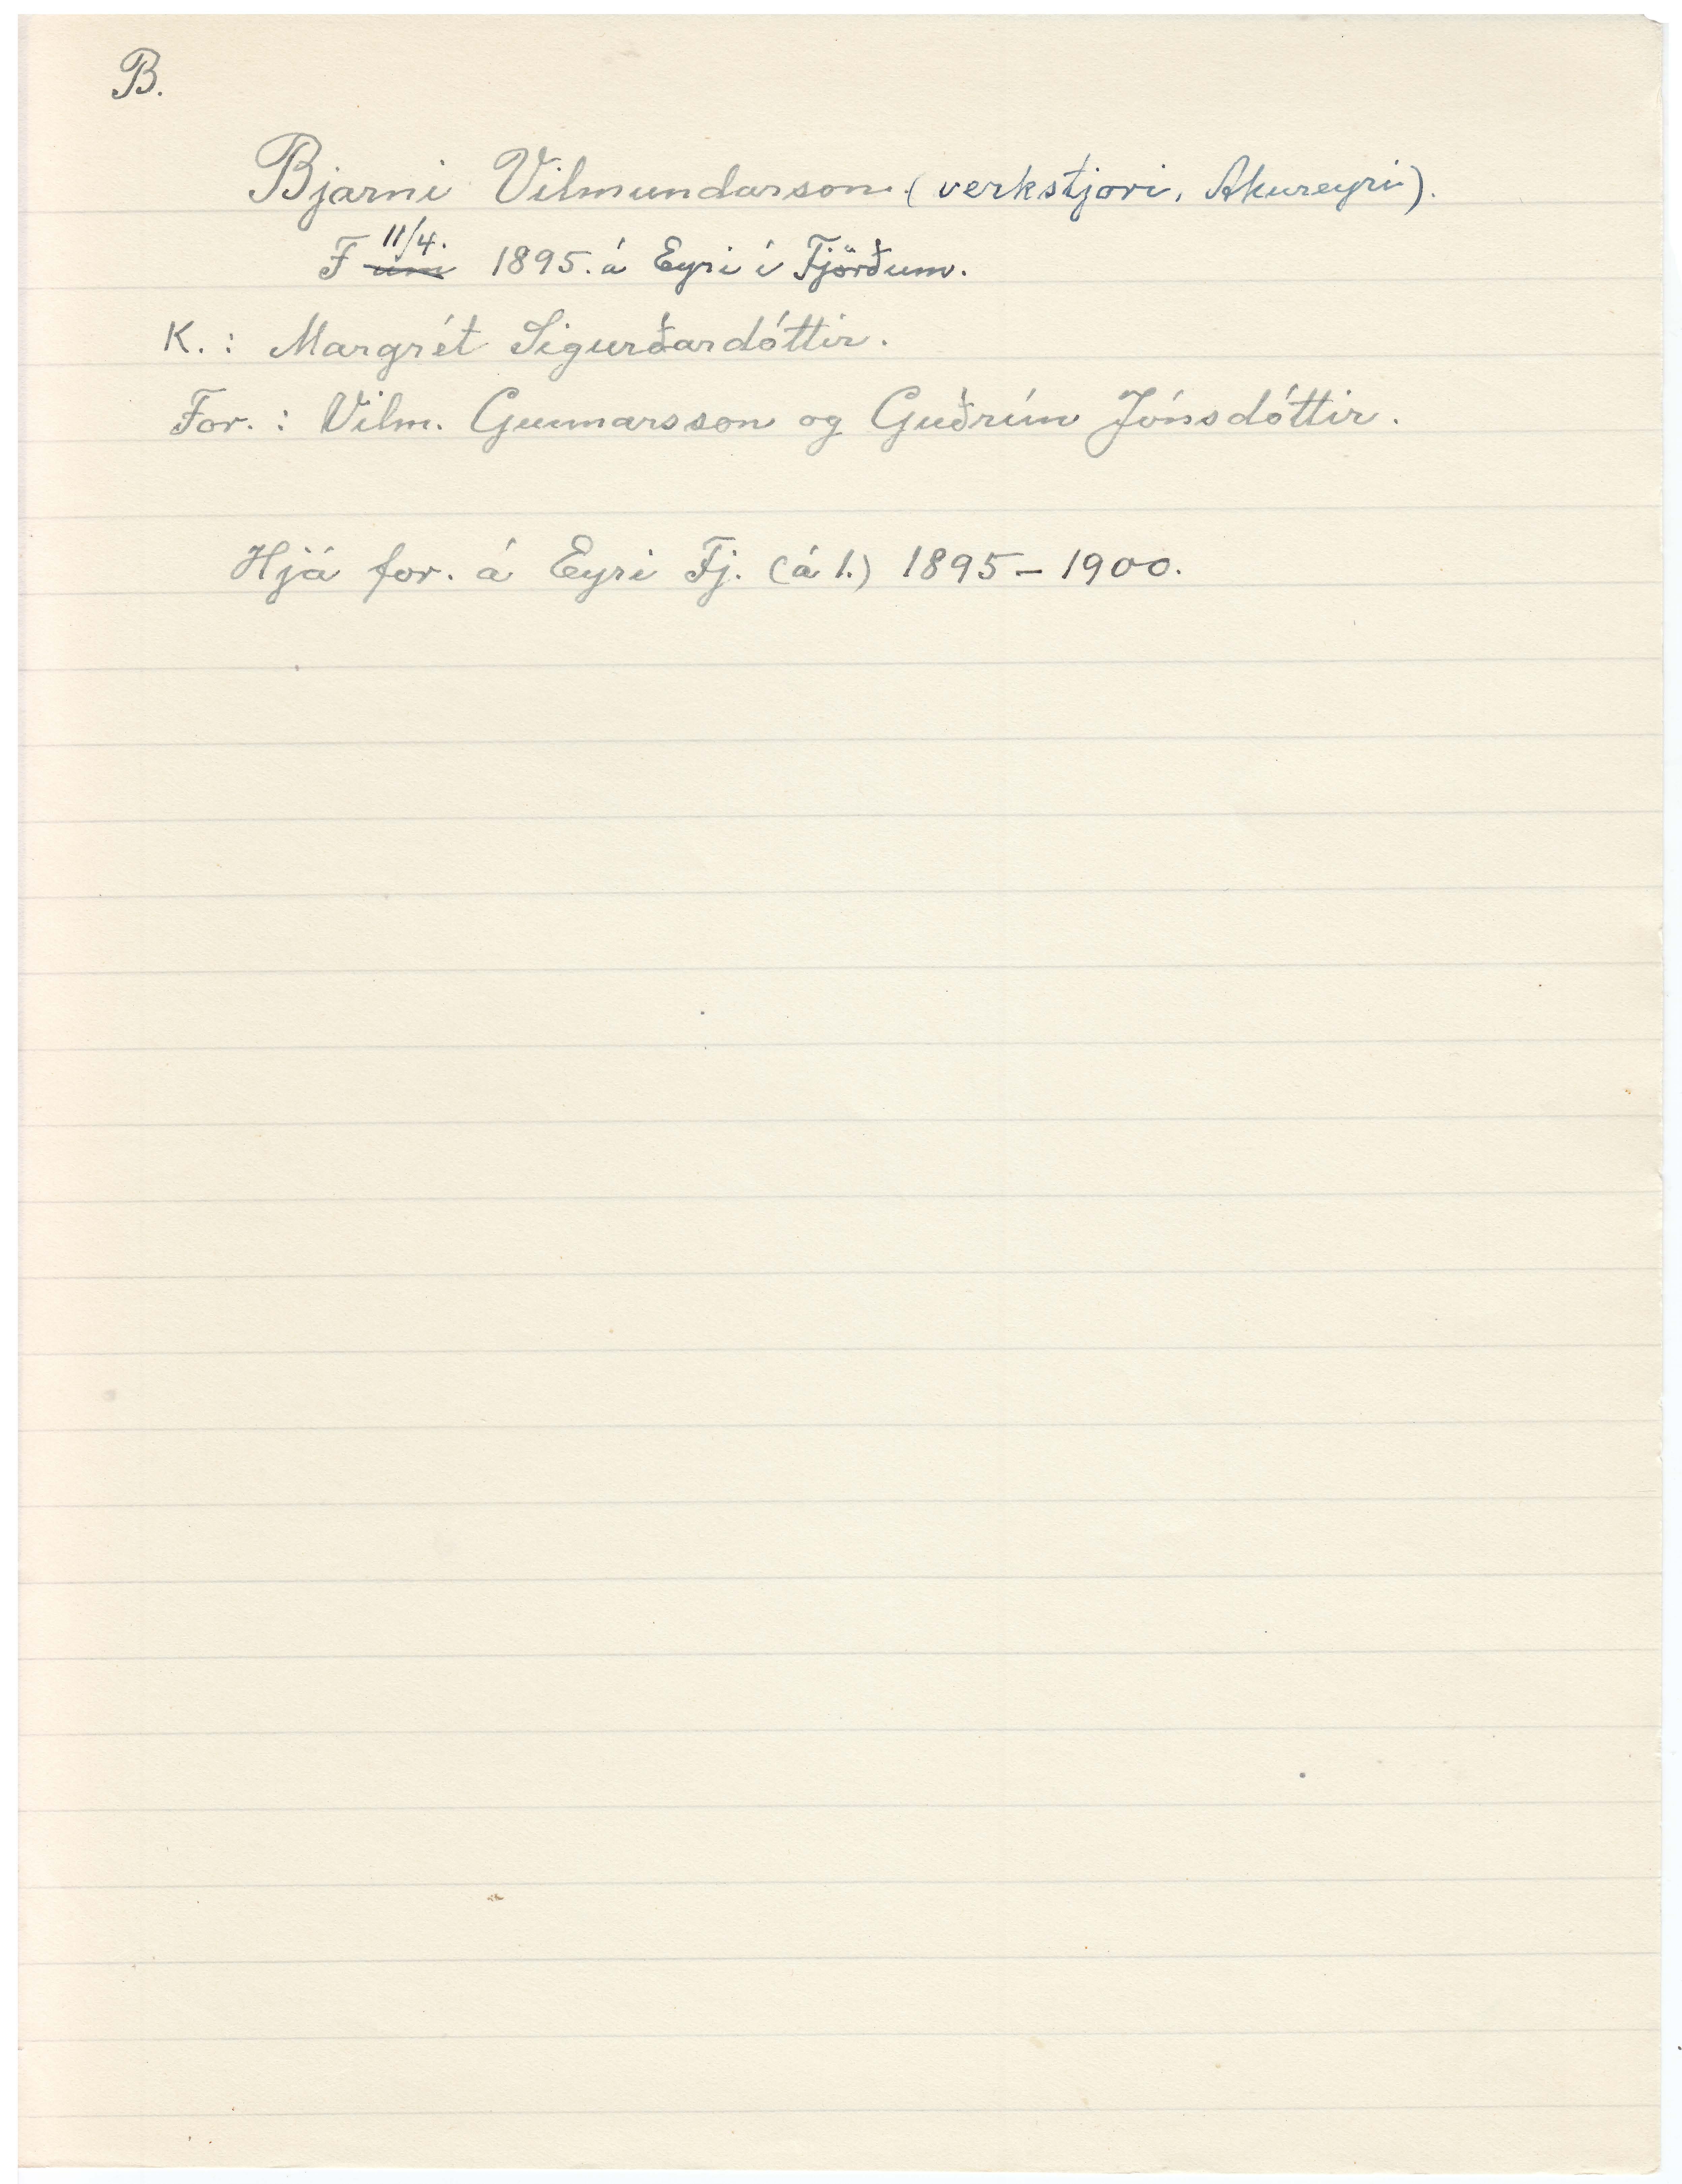 B.
Bjarni Vilmundarson. (verkstjori, Akureyri).
F um 11/4. 1895. á Eyri í Fjörðum.
K. : Margrét Sigurðardóttir.
For. : Vilm. Gunnarsson og Guðrún Jónsdóttir.
Hjá for. á Eyri Fj. (á 1.) 1895 - 1900.